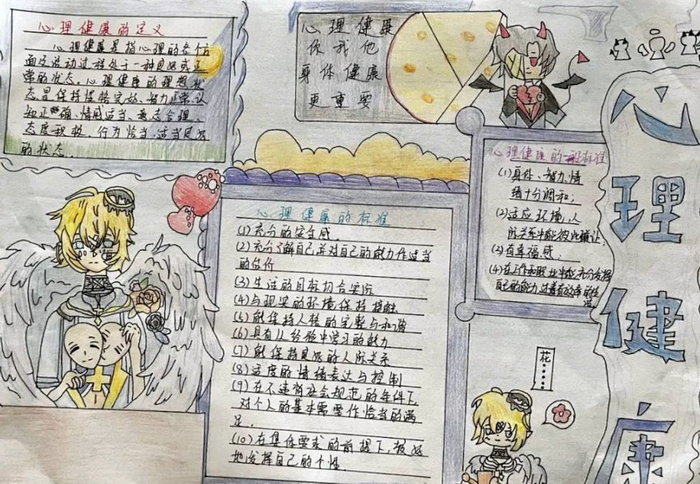 心理健康的定义
心理健康是指心理的各个方面及活动过程处于一种良好或正
常的状态。心理健康的理想状
态是保持性格完好、智力正常、认
知正确、情感适当、意志合理、
态度积极、行为恰当、适当良好
的状态。
心理健康
你我他
身体健康
更重要
心理健康的一般标准
(1)身体、智力、情
绪十分调和;
(2)适应环境,人
际关系中能彼此谦让;
(3)有幸福感;
(4)在工作和职业中能充分发挥
自己的能力,过着有效率的生
心理健康的标准
(1)充分的安全感
(2)充分了解自己并对自己的能力作适当
的估价
(3)生活的目标切合实际
(4)与现实的环境保持接触
(5)能保持人格的完整与和谐
(6)具有从经验中学习的能力
(7)能保持良好的人际关系
(8)适度的情绪表达与控制
(9)在不违背社会规范的条件下
对个人的基本需要作恰当的满
足。
(10)在集体要求的前提下,较好
地发挥自己的个性
花……
心理健康